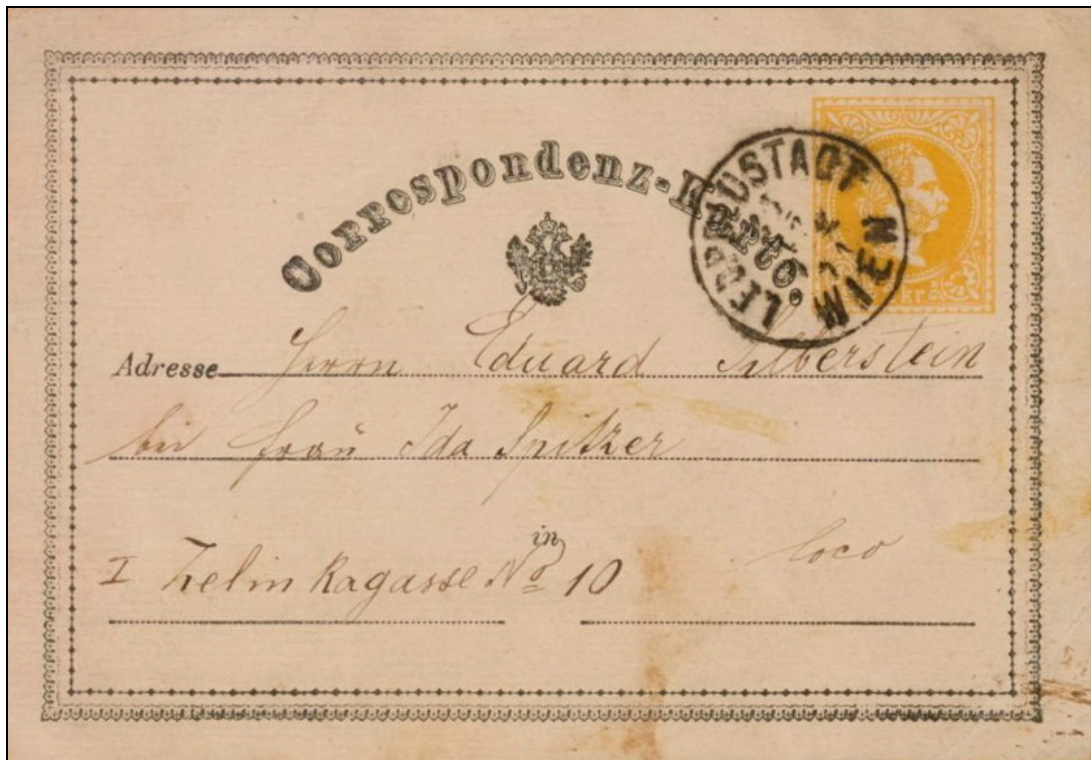 Correspondenz-Karte
LEOPOLDSTADT
WIEN
Adresse Herrn Eduard Silberstein
bei Frau Ida Spitzer
in
I Zelinkagasse No 10 loco